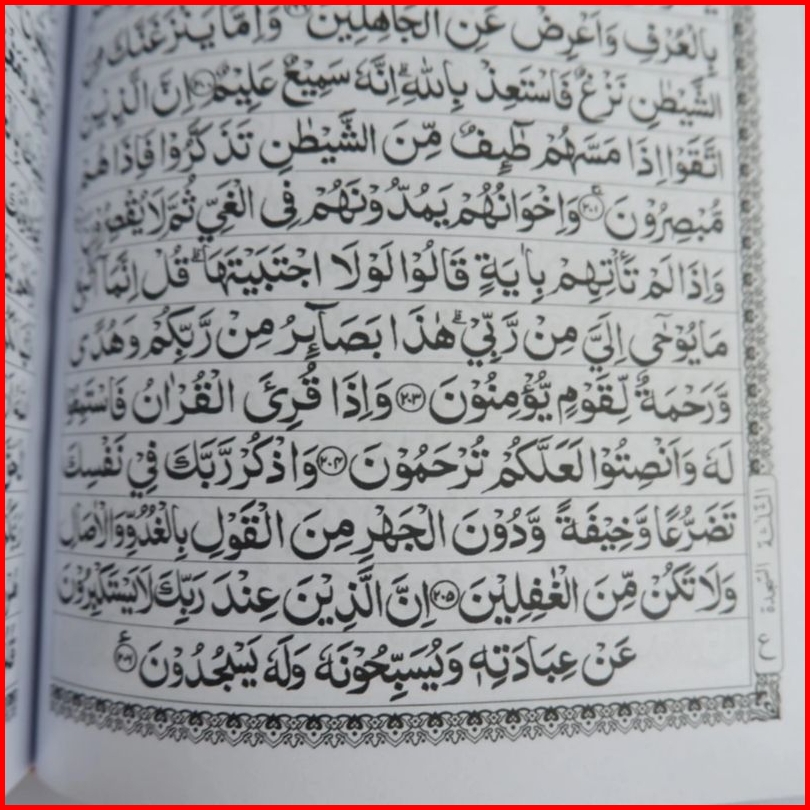 بِالْعُرْفِ وَاَعْرِضْ عَنِ الْجَاهِلِيْنَ ﴿۱۹۹﴾ وَاِمَّا يَنْزَغَنَّكَ مِنَ
الشَّيْطٰنِ نَزْغٌ فَاسْتَعِذْ بِاللّٰهِ ؕ اِنَّهٗ سَمِيْعٌ عَلِيْمٌ ﴿۲۰۰﴾ اِنَّ الَّذِيْنَ
اتَّقَوْا اِذَا مَسَّهُمْ طٰٓئِفٌ مِّنَ الشَّيْطٰنِ تَذَكَّرُوْا فَاِذَا هُمْ
مُّبْصِرُوْنَ ﴿۲۰۱﴾ وَاِخْوَانُهُمْ يَمُدُّوْنَهُمْ فِى الْغَيِّ ثُمَّ لَا يُقْصِرُوْنَ
وَاِذَا لَمْ تَاْتِهِمْ بِاٰيَةٍ قَالُوْا لَوْلَا اجْتَبَيْتَهَا ؕ قُلْ اِنَّمَآ
مَا يُوْحٰٓى اِلَيَّ مِنْ رَّبِّيْ ۚ هٰذَا بَصَآئِرُ مِنْ رَّبِّكُمْ وَهُدًى
وَّرَحْمَةٌ لِّقَوْمٍ يُّؤْمِنُوْنَ ﴿۲۰۳﴾ وَاِذَا قُرِئَ الْقُرْاٰنُ فَاسْتَمِعُوْا
لَهٗ وَاَنْصِتُوْا لَعَلَّكُمْ تُرْحَمُوْنَ ﴿۲۰۴﴾ وَاذْكُرْ رَّبَّكَ فِيْ نَفْسِكَ
تَضَرُّعًا وَّخِيْفَةً وَّدُوْنَ الْجَهْرِ مِنَ الْقَوْلِ بِالْغُدُوِّ وَالْاٰصَالِ
وَلَا تَكُنْ مِّنَ الْغٰفِلِيْنَ ﴿۲۰۵﴾ اِنَّ الَّذِيْنَ عِنْدَ رَبِّكَ لَا يَسْتَكْبِرُوْنَ
عَنْ عِبَادَتِهٖ وَيُسَبِّحُوْنَهٗ وَلَهٗ يَسْجُدُوْنَ ﴿۲۰۶﴾ ع
السجدة
ع